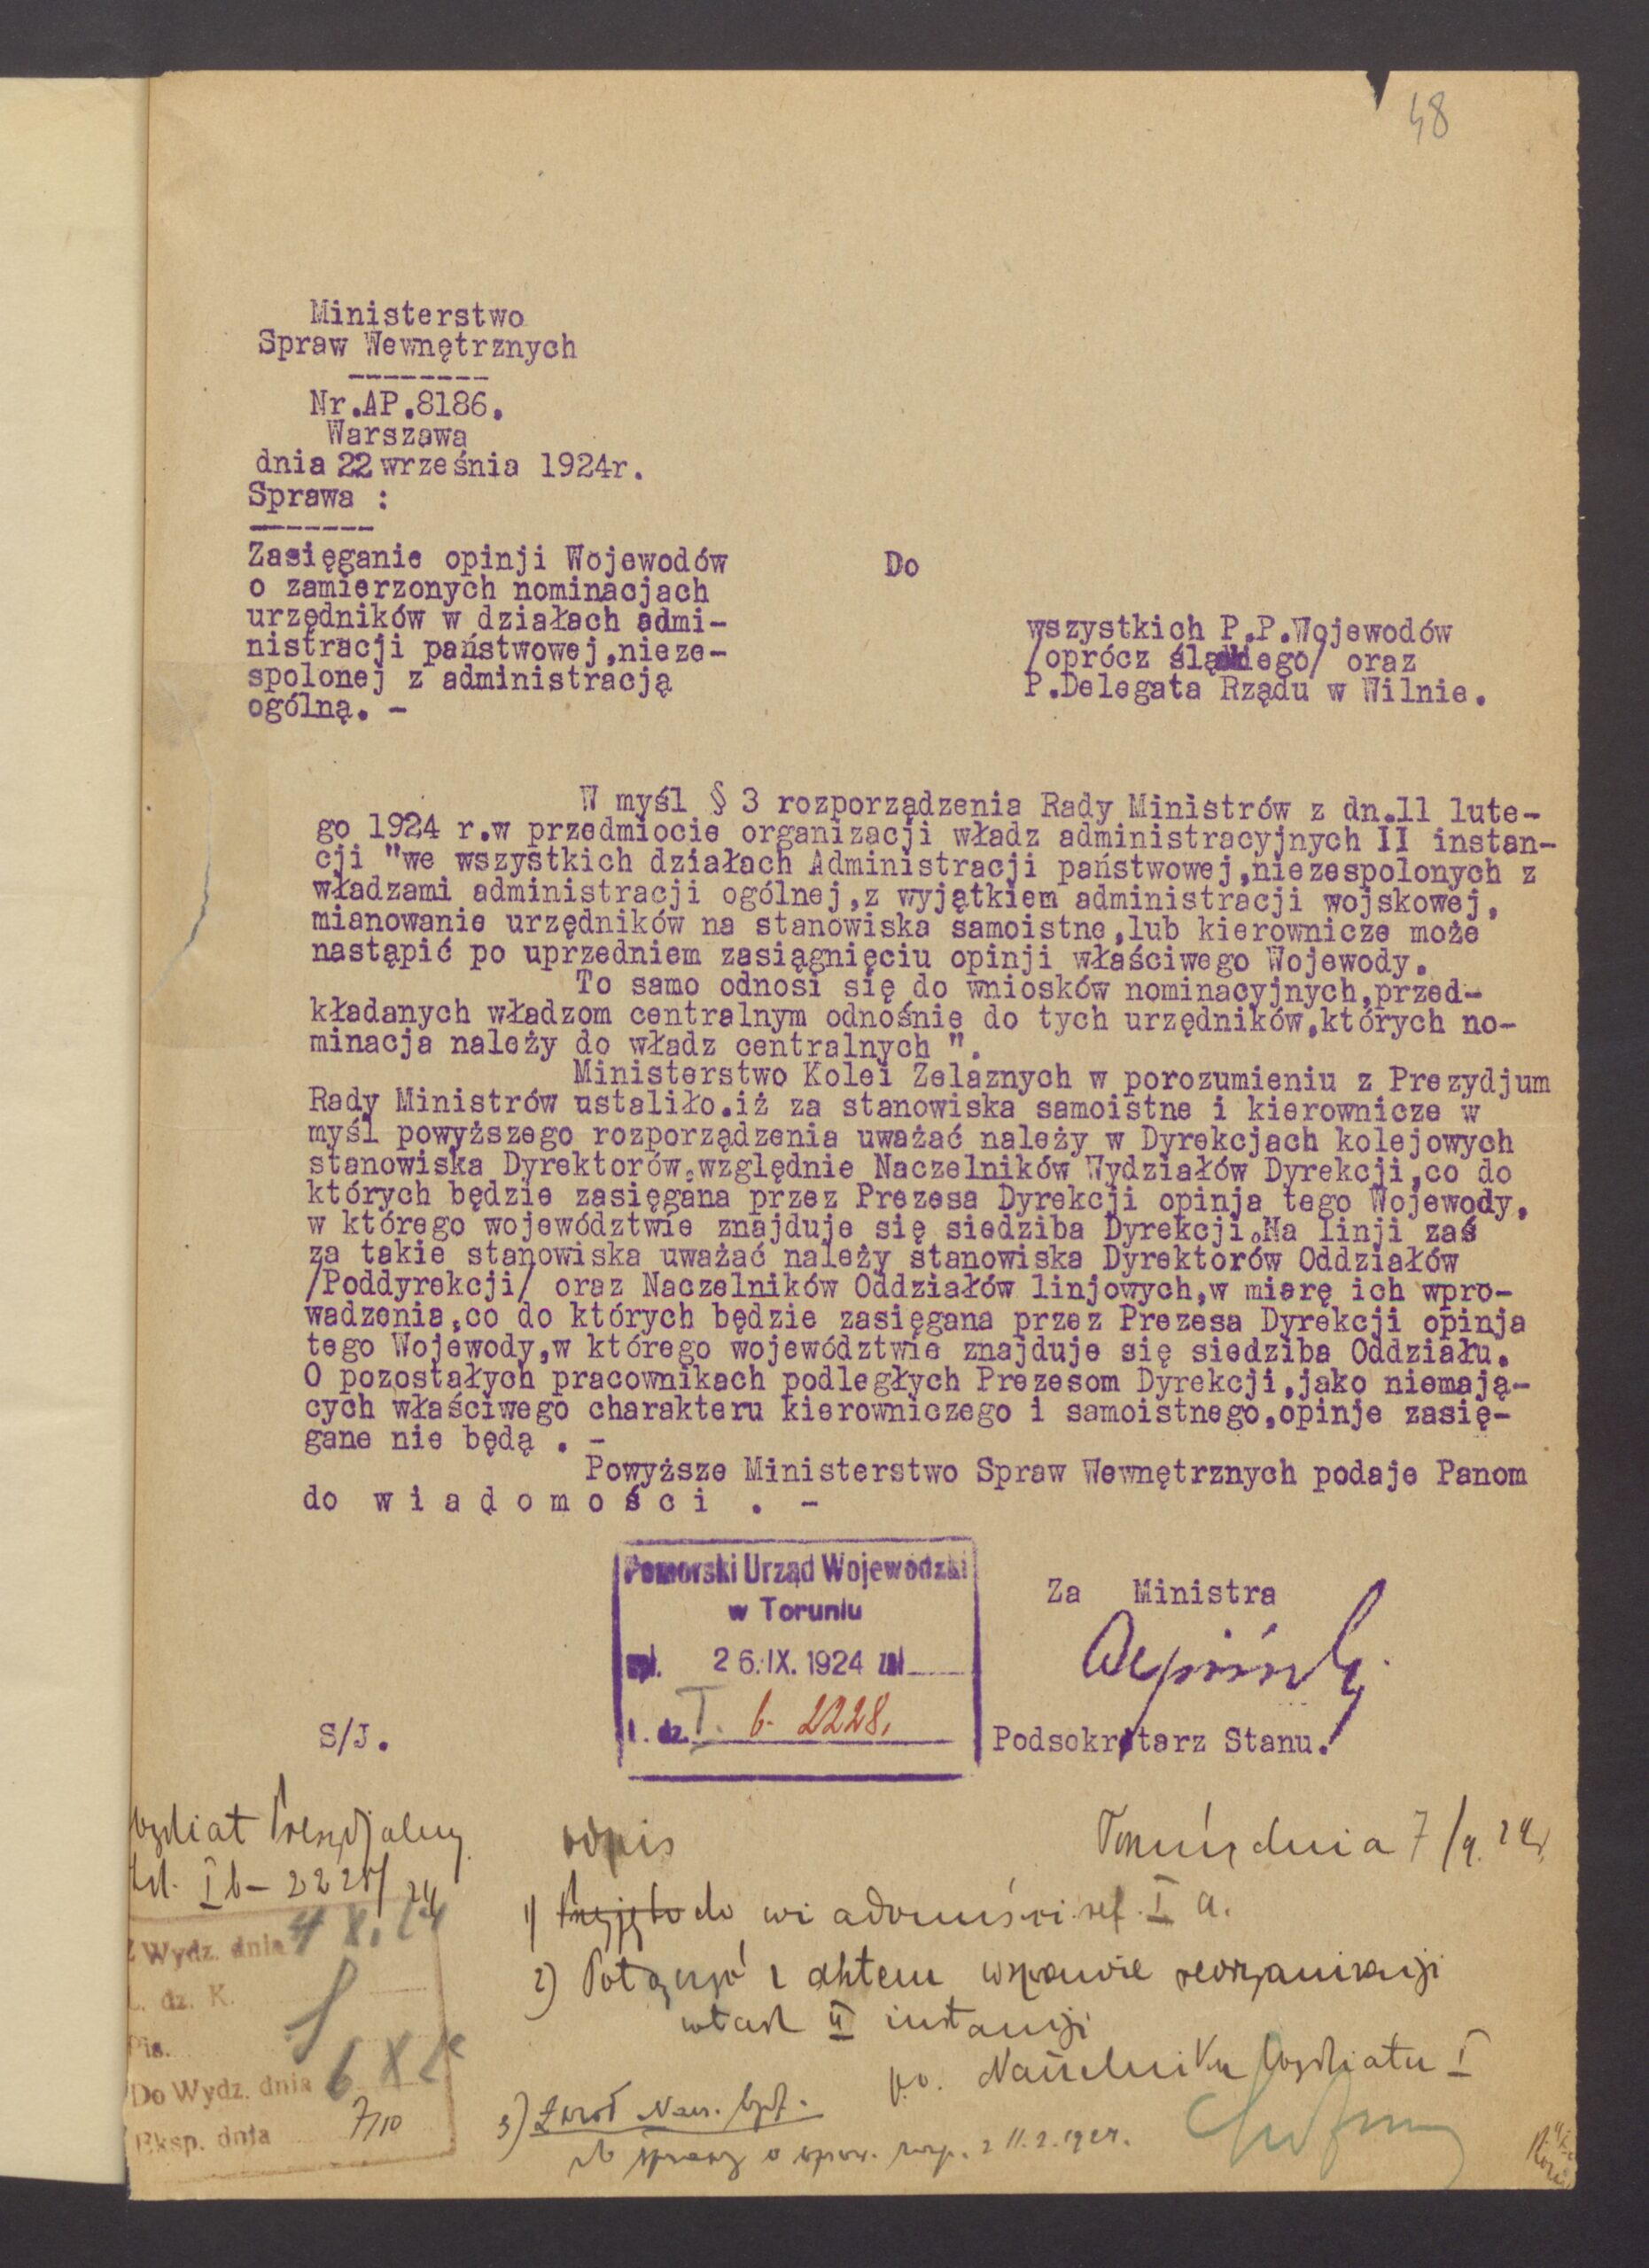 48
Ministerstwo
Spraw Wewnętrznych
--------
Nr.AP.8186.
Warszawa
dnia 22 września 1924r.
Sprawa :
-------
Zasięganie opinji Wojewodów
o zamierzonych nominacjach
urzędników w działach admi-
nistracji państwowej,nieze-
spolonej z administracją
ogólną. -
Do
wszystkich P.P.Wojewodów
/oprócz śląskiego/ oraz
P.Delegata Rządu w Wilnie.
W myśl § 3 rozporządzenia Rady Ministrów z dn.11 lute-
go 1924 r.w przedmiocie organizacji władz administracyjnych II instan-
cji "we wszystkich działach Administracji państwowej,niezespolonych z
władzami administracji ogólnej,z wyjątkiem administracji wojskowej,
mianowanie urzędników na stanowiska samoistne,lub kierownicze może
nastąpić po uprzedniem zasiągnięciu opinji właściwego Wojewody.
To samo odnosi się do wniosków nominacyjnych,przed-
kładanych władzom centralnym odnośnie do tych urzędników,których no-
minacja należy do władz centralnych ".
Ministerstwo Kolei Zelaznych w porozumieniu z Prezydjum
Rady Ministrów ustaliło.iż za stanowiska samoistne i kierownicze w
myśl powyższego rozporządzenia uważać należy w Dyrekcjach kolejowych
stanowiska Dyrektorów,względnie Naczelników Wydziałów Dyrekcji,co do
których będzie zasięgana przez Prezesa Dyrekcji opinja tego Wojewody,
w którego województwie znajduje się siedziba Dyrekcji.Na linji zaś
za takie stanowiska uważać należy stanowiska Dyrektorów Oddziałów
/Poddyrekcji/ oraz Naczelników Oddziałów linjowych,w miarę ich wpro-
wadzenia,co do których będzie zasięgana przez Prezesa Dyrekcji opinja
tego Wojewody,w którego województwie znajduje się siedziba Oddziału.
O pozostałych pracownikach podległych Prezesom Dyrekcji,jako niemają-
cych właściwego charakteru kierowniczego i samoistnego,opinje zasię-
gane nie będą . -
Powyższe Ministerstwo Spraw Wewnętrznych podaje Panom
do w i a d o m o ś c i . -
Pomorski Urząd Wojewódzki
w Toruniu
wpł. 26.IX.1924 zał
l. dz. I. b- 2228.
Za Ministra
Podsekretarz Stanu.
S/J.
Wydział Prezydjalny
Toruń, dnia 7/9. 24r.
odpis
1) Przyjęto do wiadomości ref. I a.
2) Połączyć z aktem w sprawie reorganizacji
władz II instancji
p.o. Naczelnika Wydziału I
3) Zwrot Nacz. Wydz.
11.2.1924.
Wydz. dnia 4 X. 24
L. dz. K.
Pis.
Do Wydz. dnia 6 X
Eksp. dnia 7/10